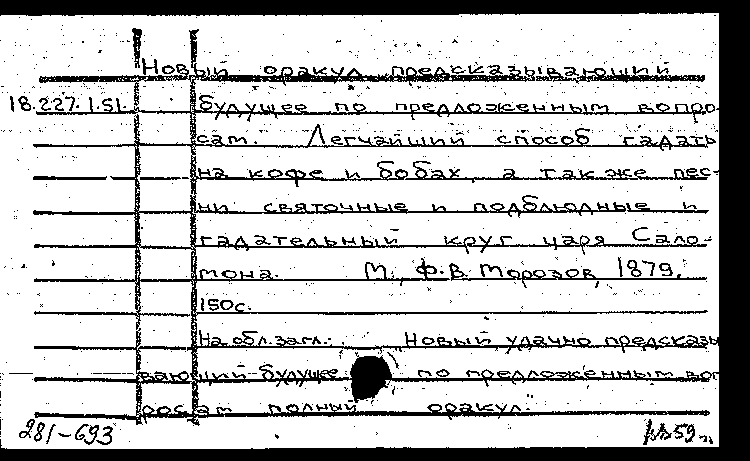 Новый оракул предсказывающий
18.227.1.51. будущее по предложенным вопро-
сам. Легчайший способ гадать
на кофе и бобах, а также пес-
ни святочные и подблюдные и
гадательный круг царя Сало-
мона. М., Ф.В. Морозов, 1879.
150с.
На обл.загл.: Новый удачно предсказы
вающий будуще по предложенным воп
росам полный оракул.
281-693